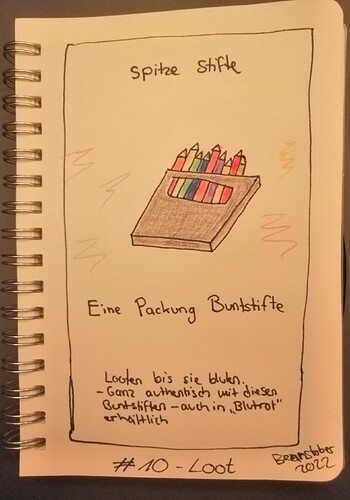 Spitze Stifte
Eine Packung Buntstifte
Looten bis sie bluten.
- Ganz authentisch mit diesen
Buntstiften - auch in „Blutrot"
erhältlich
#10 - Loot
2022